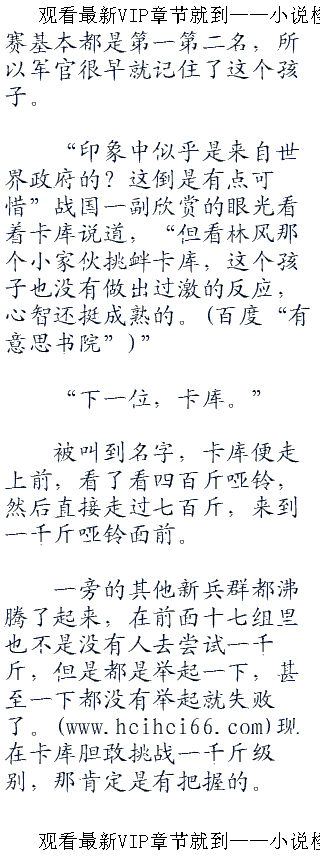 观看最新VIP章节就到——小说
赛基本都是第一第二名，所
以军官很早就记住了这个孩
子。
“印象中似乎是来自世
界政府的？这倒是有点可
惜”战国一副欣赏的眼光看
着卡库说道，“但看林风那
个小家伙挑衅卡库，这个孩
子也没有做出过激的反应，
心智还挺成熟的。(百度“有
意思书院”)”
“下一位，卡库。”
被叫到名字，卡库便走
上前，看了看四百斤哑铃，
然后直接走过七百斤，来到
一千斤哑铃面前。
一旁的其他新兵群都沸
腾了起来，在前面十七组里
也不是没有人去尝试一千
斤，但是都是举起一下，甚
至一下都没有举起就失败
了。(www.hcihci66.com)现
在卡库胆敢挑战一千斤级
别，那肯定是有把握的。
观看最新VIP章节就到——小说